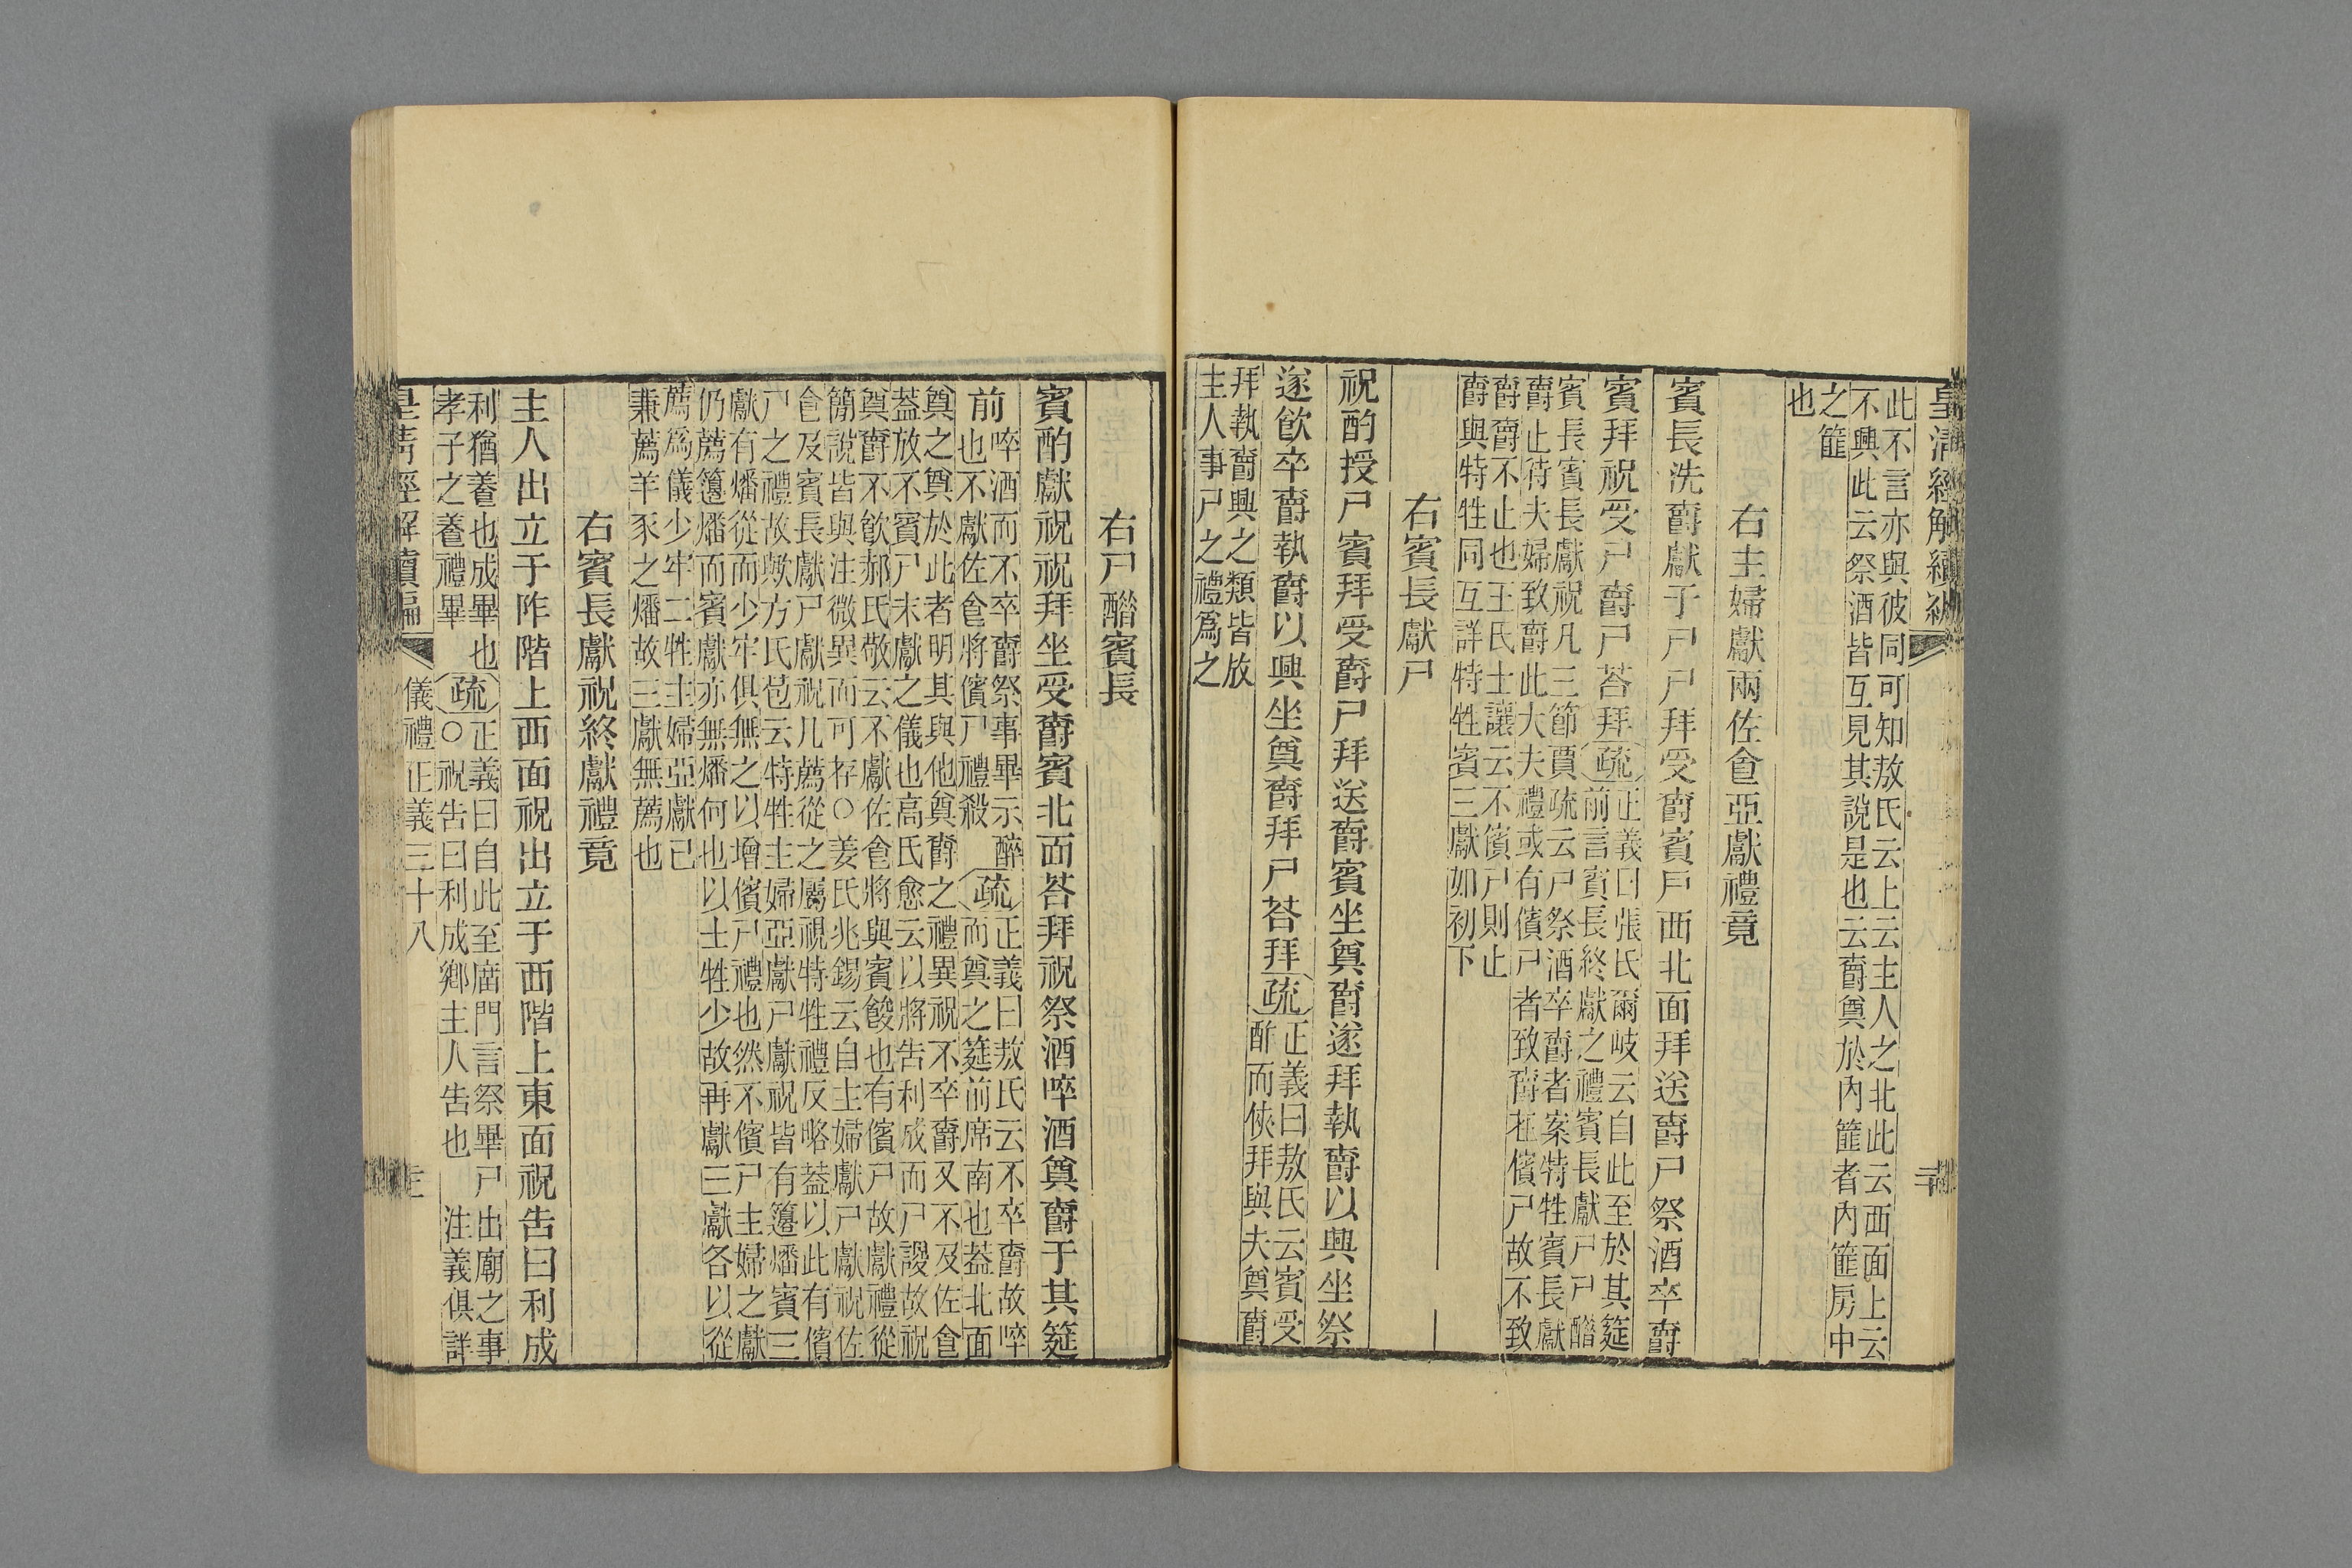 皇清經解續編
此不言亦與彼同可知敖氏云上云主人之北此云西面上云
不興此云祭酒皆互見其說是也云爵奠於內篚者內篚房中
之篚
也
右主婦獻兩佐食亞獻禮竟
賓長洗爵獻于尸尸拜受爵賓戶西北面拜送爵尸祭酒卒爵
賓拜祝受尸爵尸荅拜疏
正義曰張氏爾岐云自此至於其筵
前言賓長終獻之禮賓長獻尸尸醋
賓長賓長獻祝凡三節賈疏云尸祭酒卒爵者案特牲賓長獻
爵止待夫婦致爵此大夫禮或有儐尸者致爵在儐尸故不致
爵爵不止也王氏士讓云不儐尸則止
爵與特牲同互詳特牲賓三獻如初下
右賓長獻尸
祝酌授尸賓拜受爵尸拜送爵賓坐奠爵遂拜執爵以興坐祭
遂飮卒爵執爵以興坐奠爵拜尸荅拜疏
正義曰敖氏云賓受
酢而俠拜與夫奠爵
拜執爵興之類皆放
主人事尸之禮爲之
右尸醋賓長
賓酌獻祝祝拜坐受爵賓北面荅拜祝祭酒啐酒奠爵于其筵
前
啐酒而不卒爵祭事畢示醉
也不獻佐食將儐尸禮殺
疏
正義曰敖氏云不卒爵故啐
而奠之筵前席南也葢北面
奠之奠於此者明其與他奠爵之禮異祝不卒爵又不及佐食
葢放不賓尸末獻之儀也高氏愈云以將告利成而尸謖故祝
奠爵不飮郝氏敬云不獻佐食將與賓餕也有儐尸故獻禮從
簡說皆與注微異而可存○姜氏兆錫云自主婦獻尸獻祝佐
食及賓長獻尸獻祝几薦從之屬視特牲禮反略葢以此有儐
尸之禮故歟方氏苞云特牲主婦亞獻尸獻祝皆有籩燔賓三
獻有燔從而少牢俱無之以增儐尸禮也然不儐尸主婦之獻
仍薦籩燔而賓獻亦無燔何也以士牲少故再獻三獻各以從
薦爲儀少牢二牲主婦亞獻已
兼薦羊豕之燔故三獻無薦也
右賓長獻祝終獻禮竟
主人出立于阼階上西面祝出立于西階上東面祝告曰利成
利猶養也成畢也
孝子之養禮畢
疏
正義曰自此至廟門言祭畢尸出廟之事
○祝告曰利成鄉主人告也　注義俱詳
皇清經解續編　儀禮正義三十八